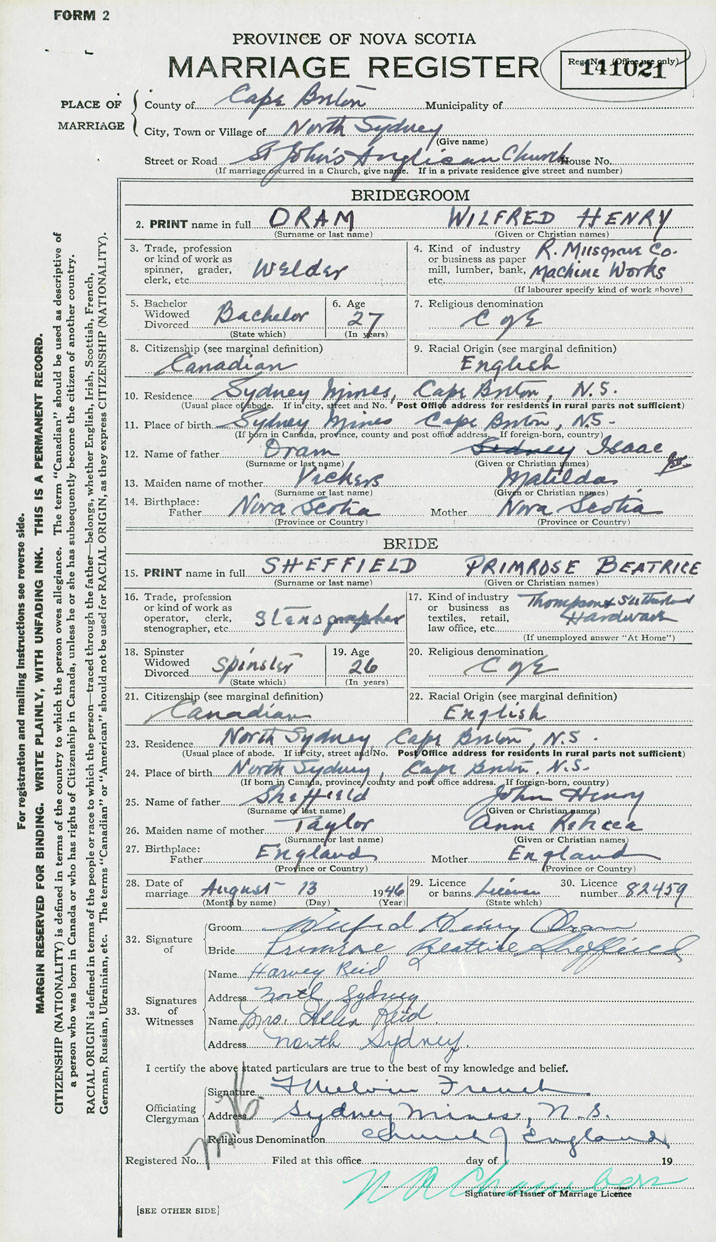 FORM 2
PROVINCE OF NOVA SCOTIA
MARRIAGE REGISTER
Reg. No. (Office use only)
141021
PLACE OF MARRIAGE
County of Cape Breton Municipality of
City, Town or Village of North Sydney
(Give name)
Street or Road St John's Anglican Church House No.
(If marriage occurred in a Church, give name. If in a private residence give street and number)
BRIDEGROOM
2. PRINT name in full ORAM WILFRED HENRY
(Surname or last name) (Given or Christian names)
3. Trade, profession or kind of work as spinner, grader, clerk, etc. Welder
4. Kind of industry or business as paper mill, lumber, bank, etc. R. Musgrave Co. Machine Works
(If labourer specify kind of work above)
5. Bachelor Widowed Divorced Bachelor
(State which)
6. Age 27
(In years)
7. Religious denomination
C of E
8. Citizenship (see marginal definition)
Canadian
9. Racial Origin (see marginal definition)
English
10. Residence Sydney Mines, Cape Breton, N.S.
(Usual place of abode. If in city, street and No. Post Office address for residents in rural parts not sufficient)
11. Place of birth Sydney Mines Cape Breton, N.S.
(If born in Canada, province, county and post office address. If foreign-born, country)
12. Name of father Oram Sydney Isaac
(Surname or last name) (Given or Christian names)
13. Maiden name of mother Vickers Matilda
(Surname or last name) (Given or Christian names)
14. Birthplace: Father Nova Scotia Mother Nova Scotia
(Province or Country) (Province or Country)
BRIDE
15. PRINT name in full SHEFFIELD PRIMROSE BEATRICE
(Surname or last name) (Given or Christian names)
16. Trade, profession or kind of work as operator, clerk, stenographer, etc. Stenographer
17. Kind of industry or business as textiles, retail, law office, etc. Thompson & Sutherland Hardware
(If unemployed answer "At Home")
18. Spinster Widowed Divorced Spinster
(State which)
19. Age 26
(In years)
20. Religious denomination
C of E
21. Citizenship (see marginal definition)
Canadian
22. Racial Origin (see marginal definition)
English
23. Residence North Sydney Cape Breton, N.S.
(Usual place of abode. If in city, street and No. Post Office address for residents in rural parts not sufficient)
24. Place of birth North Sydney, Cape Breton, N.S.
(If born in Canada, province, county and post office address. If foreign-born, country)
25. Name of father Sheffield John Henry
(Surname or last name) (Given or Christian names)
26. Maiden name of mother Taylor Anne Rebecca
(Surname or last name) (Given or Christian names)
27. Birthplace: Father England Mother England
(Province or Country) (Province or Country)
28. Date of marriage August 13 1946
(Month by name) (Day) (Year)
29. Licence or banns License
(State which)
30. Licence number 82459
32. Signature of
Groom Wilfred Henry Oram
Bride Primrose Beatrice Sheffield
33. Signatures of Witnesses
Name Harvey Reid
Address North Sydney
Name Mrs. Helen Reid
Address North Sydney.
I certify the above stated particulars are true to the best of my knowledge and belief.
Officiating Clergyman
Signature Melvin French
Address Sydney Mines, N.S.
Religious Denomination Church of England
Registered No. Filed at this office day of 19
Signature of Issuer of Marriage Licence
[SEE OTHER SIDE]
For registration and mailing instructions see reverse side.
MARGIN RESERVED FOR BINDING. WRITE PLAINLY, WITH UNFADING INK. THIS IS A PERMANENT RECORD.
CITIZENSHIP (NATIONALITY) is defined in terms of the country to which the person owes allegiance. The term "Canadian" should be used as descriptive of
a person who was born in Canada or who has rights of Citizenship in Canada, unless he or she has subsequently become the citizen of another country.
RACIAL ORIGIN is defined in terms of the people or race to which the person—traced through the father—belongs, whether English, Irish, Scottish, French,
German, Russian, Ukrainian, etc. The terms "Canadian" or "American" should not be used for RACIAL ORIGIN, as they express CITIZENSHIP (NATIONALITY).